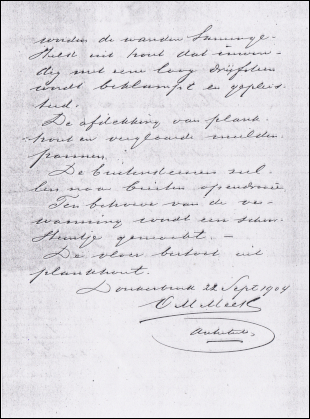 worden de wanden samenge-
steld uit hout dat inwen-
dig met eene laag drijfsteen
wordt beklampt en gepleis-
terd.
De afdekking van plank-
hout en verglaasde mulden
pannen.
De buitendeuren zul-
len naar buiten opendraaien
Ten behoeve van de ver-
warming wordt een schoor-
steentje gemaakt. –
De vloer bestaat uit
plankhout.
Donkerbroek 22 Sept 1904
Architect.